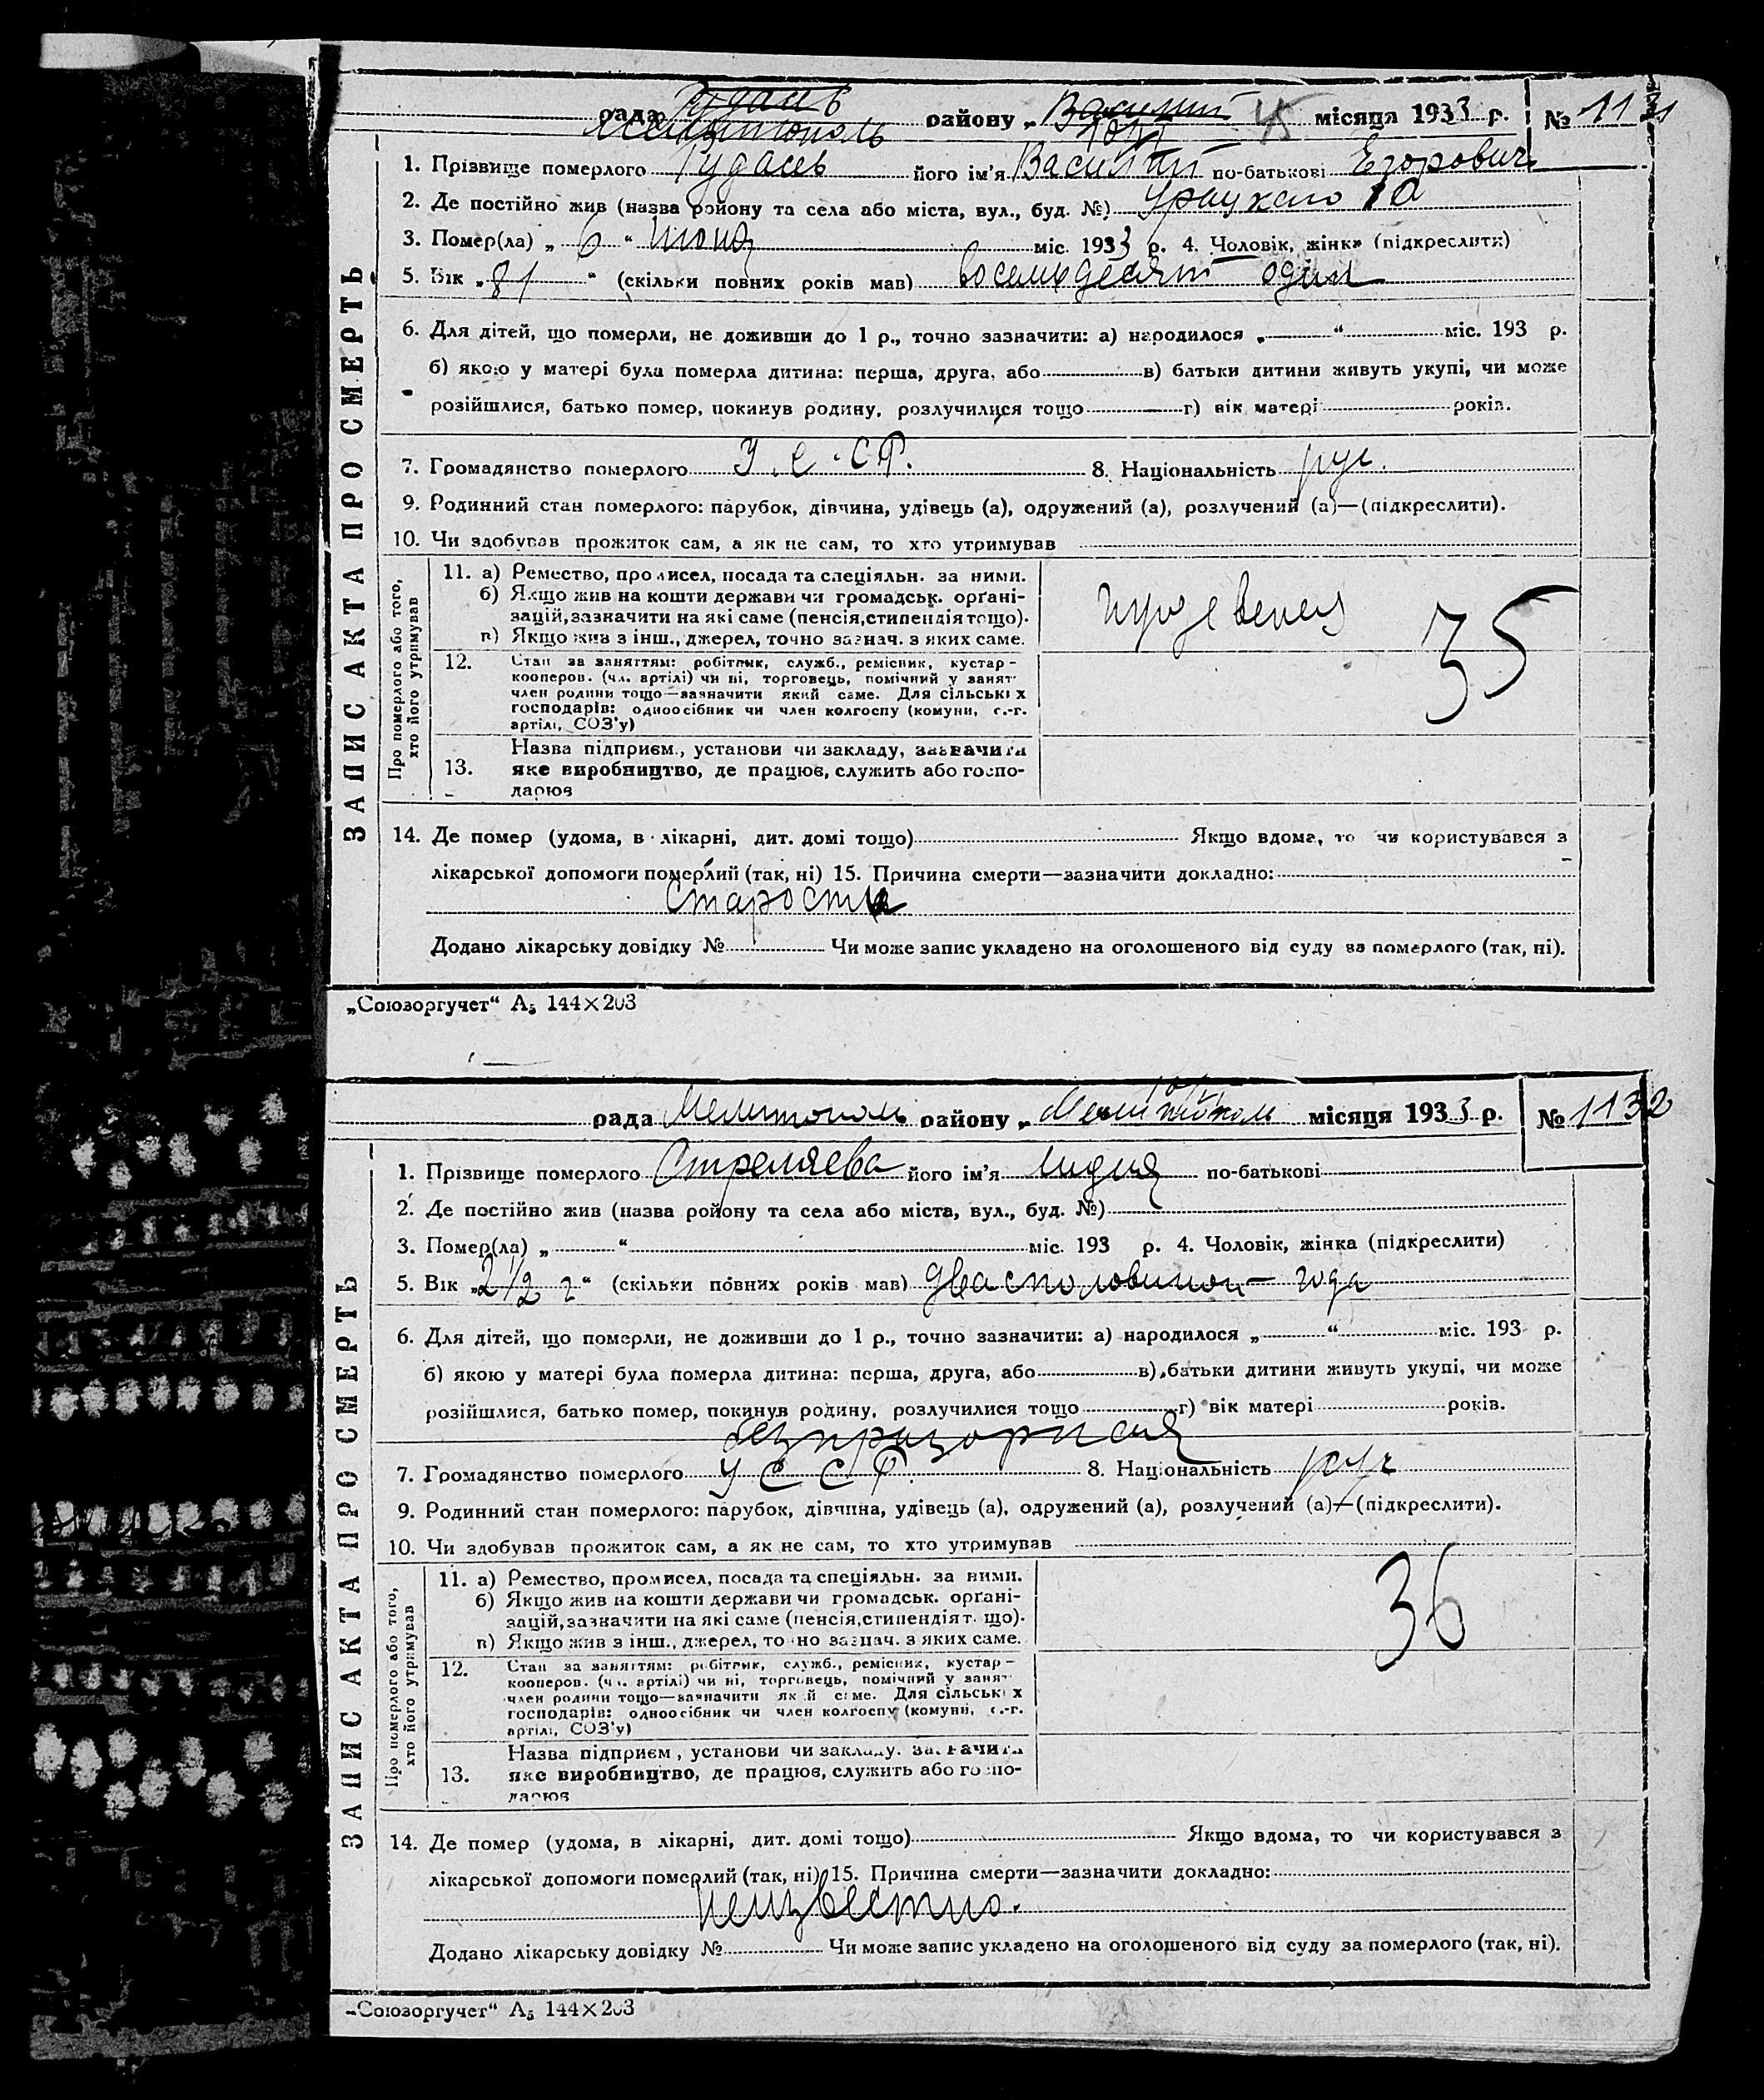 рада Мелитополь району „ місяця 1933 р. № 1131
1. Прізвище померлого його ім'я Василий по-батькові Егорович
2. Де постійно жив (назва ройону та села або міста, вул., буд. №)
3. Помер(ла) „ 6 “ июня міс. 1933 р. 4. Чоловік, жінка (підкреслити)
5. Вік „ 81 “ (скільки повних років мав) восемьдесят один
6. Для дітей, що померли, не доживши до 1 р., точно зазначити: а) народилося „ “ міс. 193 р.
б) якою у матері була померла дитина: перша, друга, або в) батьки дитини живуть укупі, чи може
розійшлися, батько помер, покинув родину, розлучилися тощо г) вік матері років.
7. Громадянство померлого У.С.СР. 8. Національність рус.
9. Родинний стан померлого: парубок, дівчина, удівець (а), одружений (а), розлучений (а)—(підкреслити).
10. Чи здобував прожиток сам, а як не сам, то хто утримував
ЗАПИС АКТА ПРО СМЕРТЬ
Про померлого або того, хто його утримував
11. а) Ремество, промисел, посада та спеціяльн. за ними.
б) Якщо жив на кошти держави чи громадськ. орґані-
зацій, зазначити на які саме (пенсія, стипендія тощо).
в) Якщо жив з інш., джерел, точно зазнач. з яких саме.
35
12. Стан за заняттям: робітник, служб., ремісник, кустар-
кооперов. (чл. артілі) чи ні, торговець, помічний у занят
член родини тощо—зазначити який саме. Для сільських
господарів: одноосібник чи член колгоспу (комуни, с.-г.
артілі, СОЗ'у)
13. Назва підприєм., установи чи закладу, зазначити
яке виробництво, де працює, служить або госпо-
дарює
14. Де помер (удома, в лікарні, дит. домі тощо) Якщо вдома, то чи користувався з
лікарської допомоги померлий (так, ні) 15. Причина смерти—зазначити докладно:
Старость
Додано лікарську довідку № Чи може запис укладено на оголошеного від суду за померлого (так, ні).
„Союзоргучет“ А5 144×203
рада Мелитополь району „ Мелитополь місяця 1933 р. № 1132
1. Прізвище померлого Стреляева його ім'я Лидия по-батькові
2. Де постійно жив (назва ройону та села або міста, вул., буд. №)
3. Помер(ла) „ “ міс. 193 р. 4. Чоловік, жінка (підкреслити)
5. Вік „ 2 1/2 г “ (скільки повних років мав) два споловиной года
6. Для дітей, що померли, не доживши до 1 р., точно зазначити: а) народилося „ “ міс. 193 р.
б) якою у матері була померла дитина: перша, друга, або в) батьки дитини живуть укупі, чи може
розійшлися, батько помер, покинув родину, розлучилися тощо г) вік матері років.
безпризорная
7. Громадянство померлого УССР. 8. Національність рус
9. Родинний стан померлого: парубок, дівчина, удівець (а), одружений (а), розлучений (а)—(підкреслити).
10. Чи здобував прожиток сам, а як не сам, то хто утримував
ЗАПИС АКТА ПРО СМЕРТЬ
Про померлого або того, хто його утримував
11. а) Ремество, промисел, посада та спеціяльн. за ними.
б) Якщо жив на кошти держави чи громадськ. орґані-
зацій, зазначити на які саме (пенсія, стипендія т. що).
в) Якщо жив з інш., джерел, точно зазнач. з яких саме.
36
12. Стан за заняттям: робітник, служб., ремісник, кустар-
кооперов. (чл. артілі) чи ні, торговець, помічний у занят
член родини тощо—зазначити який саме. Для сільських
господарів: одноосібник чи член колгоспу (комуни, с.-г.
артілі, СОЗ'у)
13. Назва підприєм., установи чи закладу, зазначити
яке виробництво, де працює, служить або госпо-
дарює
14. Де помер (удома, в лікарні, дит. домі тощо) Якщо вдома, то чи користувався з
лікарської допомоги померлий (так, ні) 15. Причина смерти—зазначити докладно:
неизвестно.
Додано лікарську довідку № Чи може запис укладено на оголошеного від суду за померлого (так, ні).
„Союзоргучет“ А5 144×203